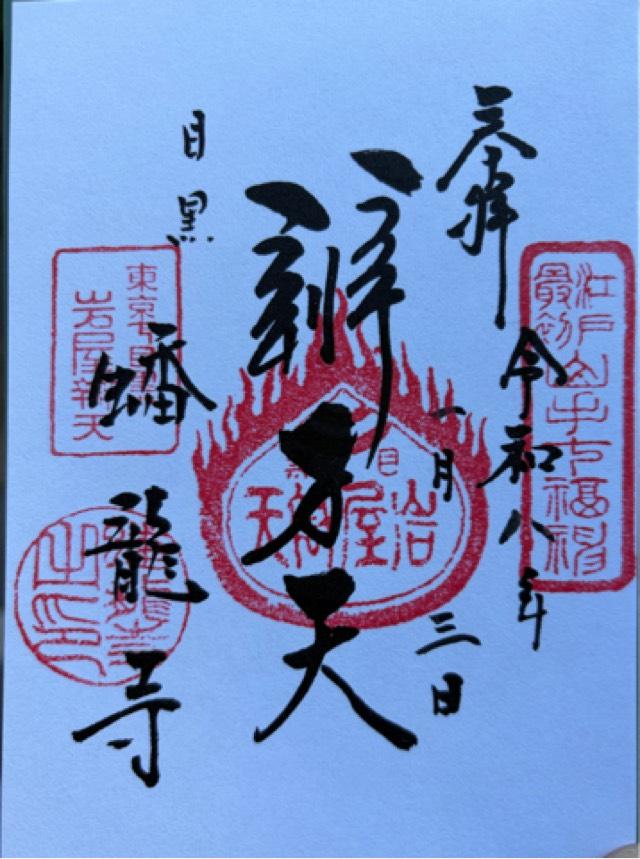 奉拝
令和八年
一月三日
江戸
最初山手七福神
辨才天
目黒
岩屋辨天
目黒
蟠龍寺
東京目黒
岩屋辨天